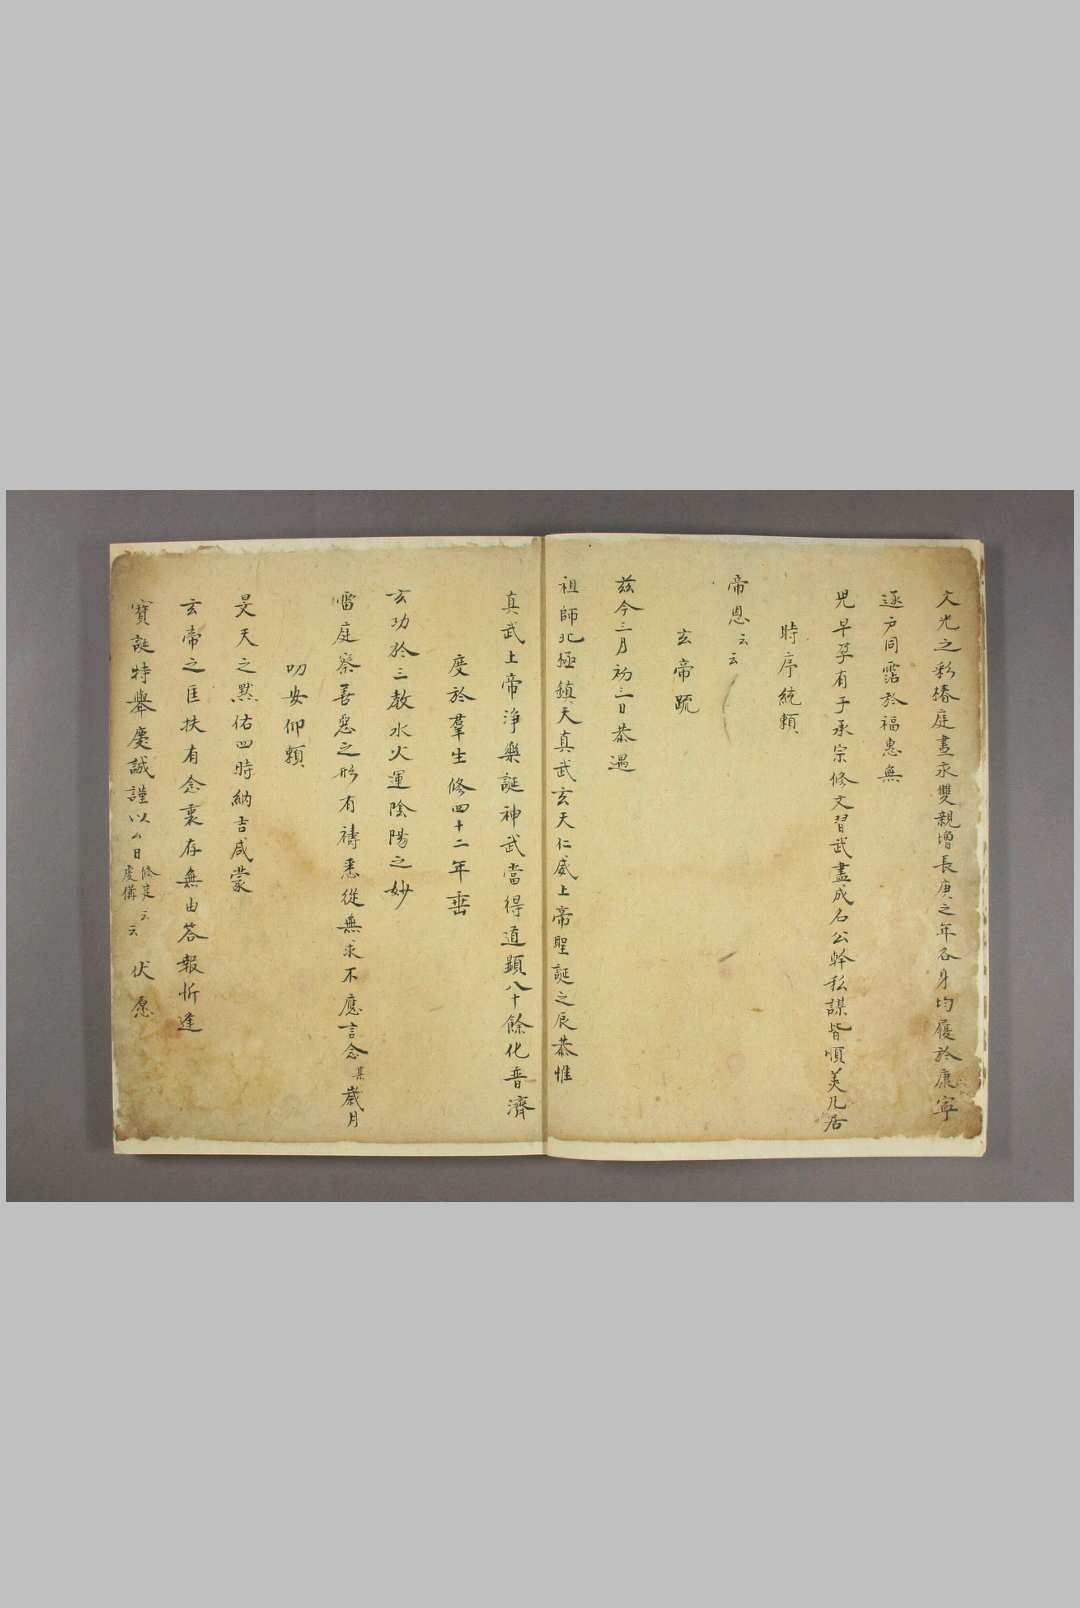 文光之彩椿庭晝永雙親增長庚之年各身均履於康寧
逐戶同霑於福惠無
児早孕有子承宗修文習武盡成名公幹私謀皆順美凡居
時序統賴
帝恩云云
玄帝疏
兹今三月初三日恭遇
祖師北極鎮天真武玄天仁威上帝聖誕之辰恭惟
真武上帝淨樂誕神武當得道顯八十餘化普濟
度於羣生修四十二年
玄功於三教水火運陰陽之妙
雷庭察善惡之形有禱悉從無求不應言念某歲月
叨安仰賴
旻天之黙佑四時納吉咸蒙
玄帝之匡扶有念裏存無由答報忻逢
寳誕特舉慶誠謹以今日修建虔備云云伏愿